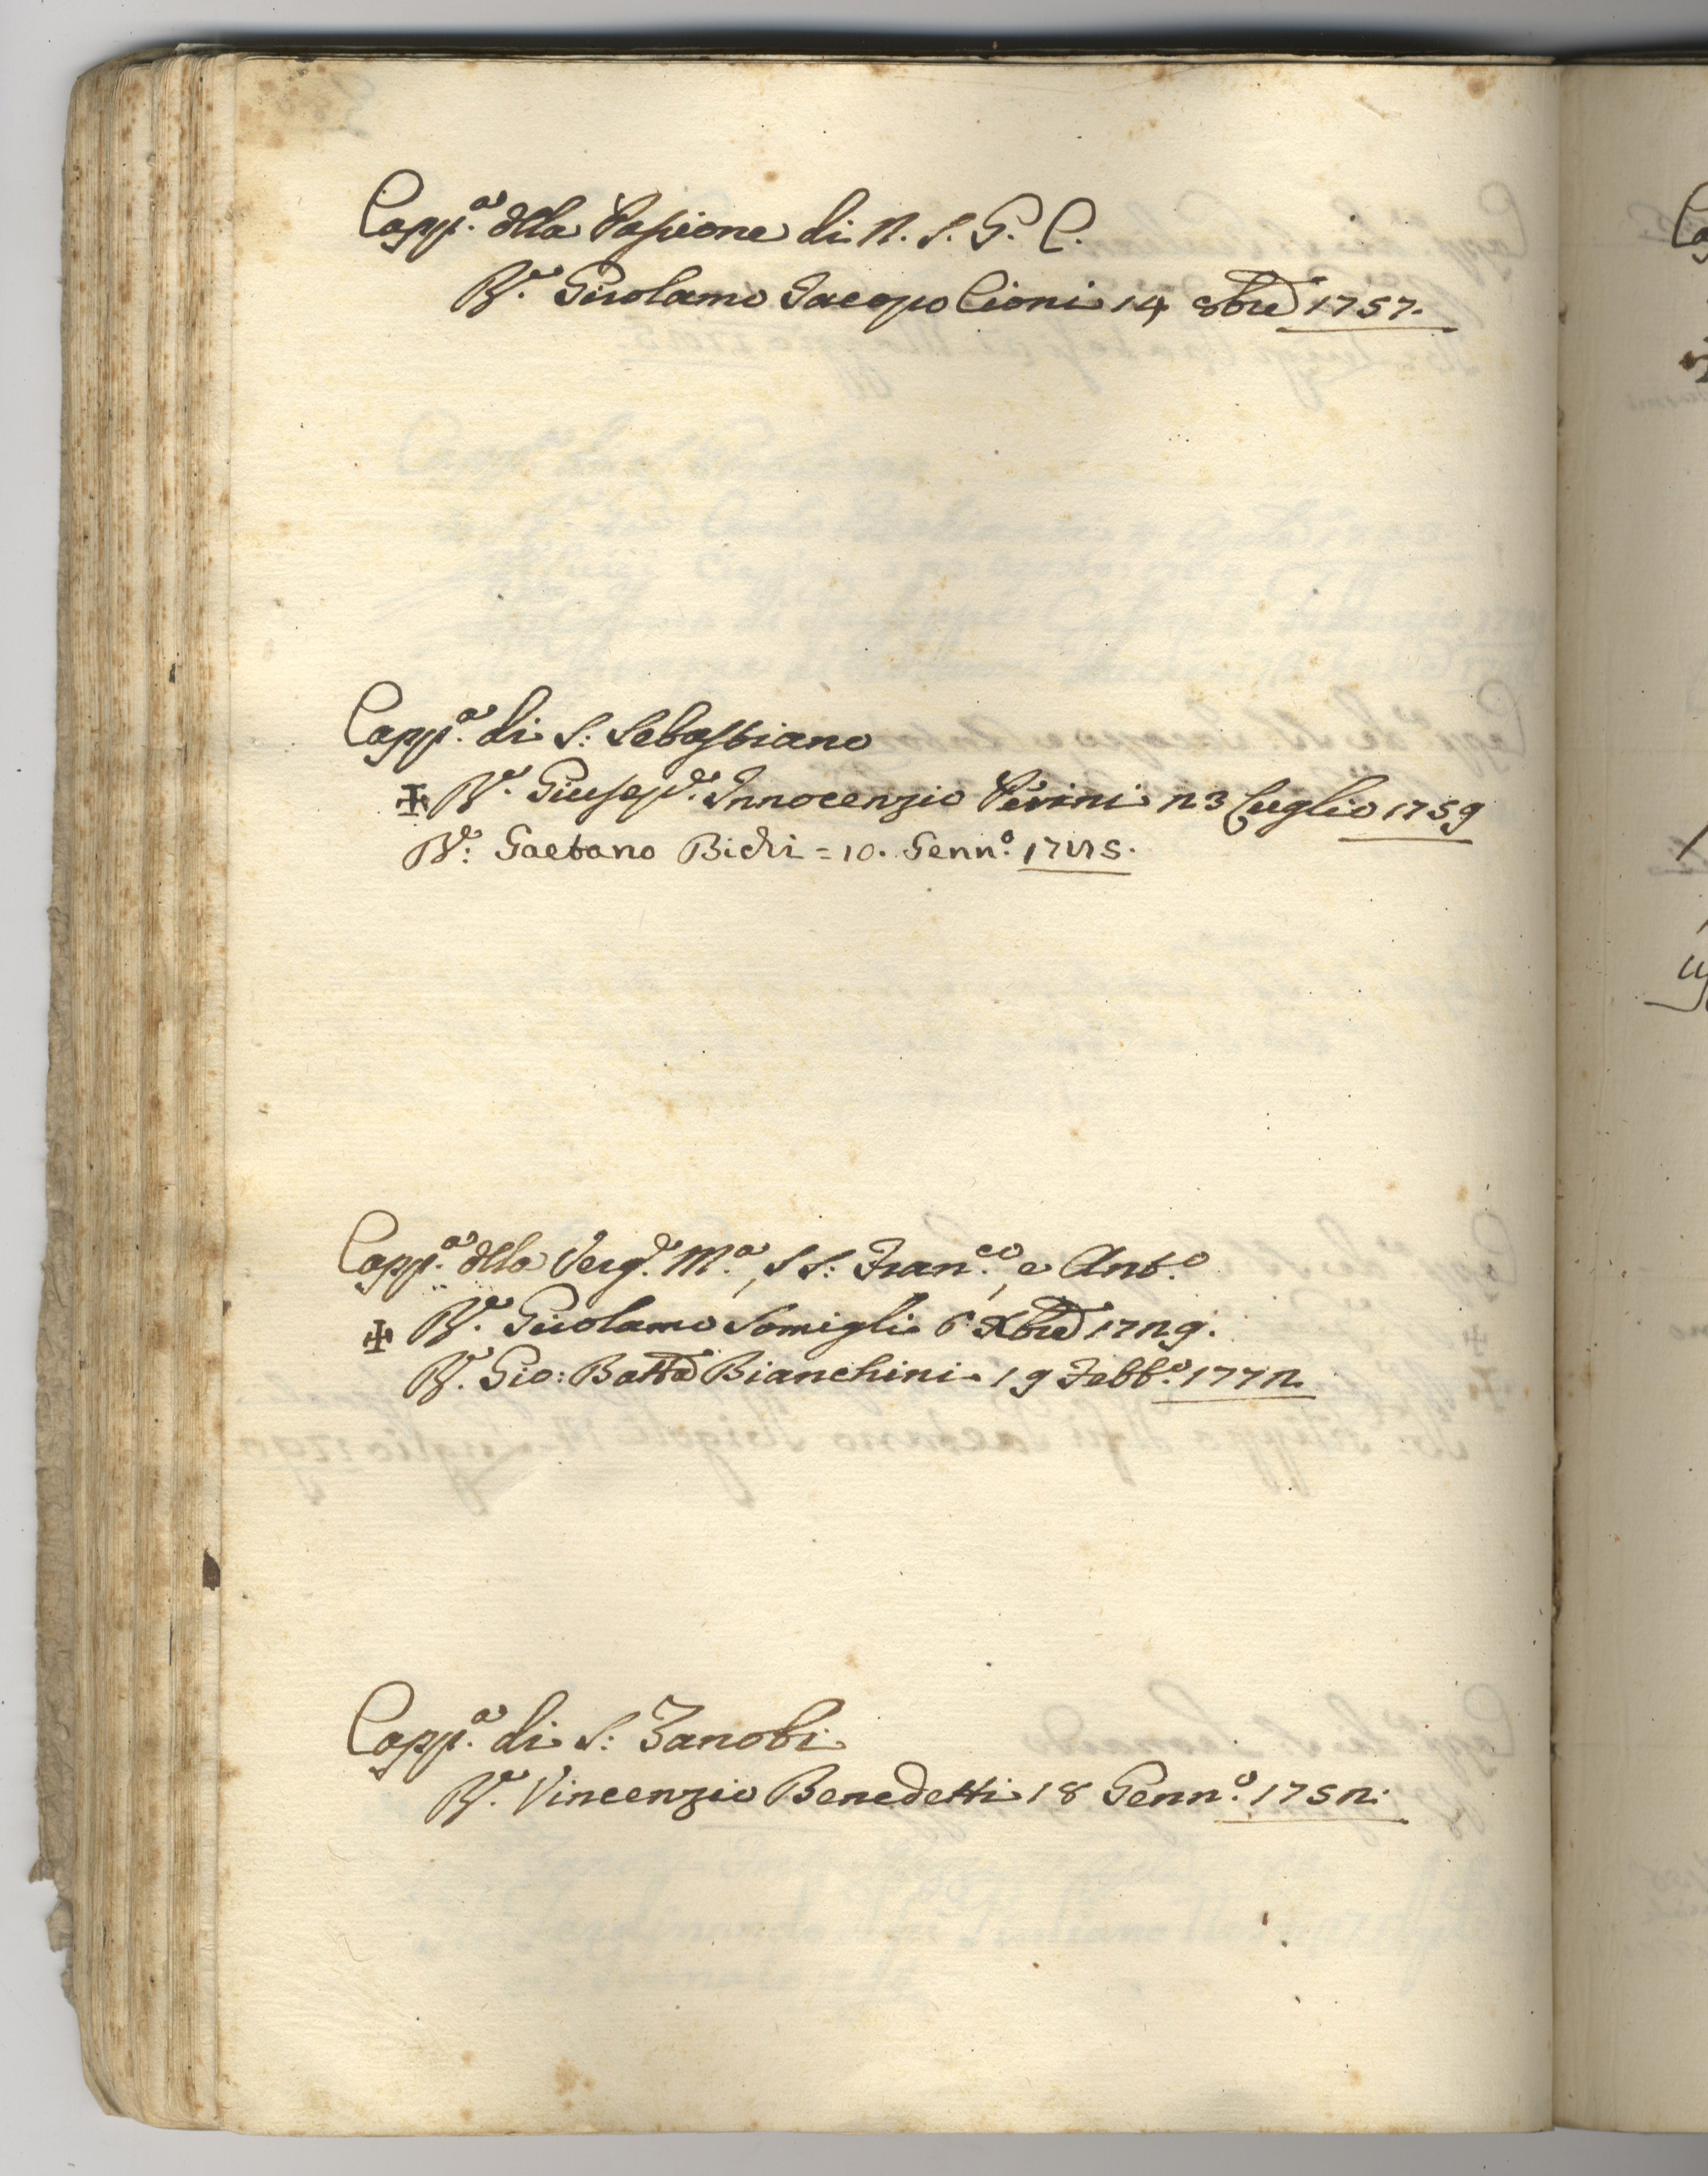 Capp.a della Passione di N. S. G. C.
R.e Girolamo Jacopo Cioni 14 8bre 1757.
Capp.a di S: Sebastiano
✠ R.e Giusep.e Innocenzio Perini 23 Luglio 1759
R.e: Gaetano Bichi = 10. Genn.o
Capp.a della Verg.e M.a, SS: Fran.co, e Ant.o
✠ R.e Girolamo Somigli 6 Xbre 1729.
R. Gio: Batta Bianchini 19 Febb.o 1772
Capp.a di S: Zanobi
R.e Vincenzio Benedetti 18 Genn.o 1752.